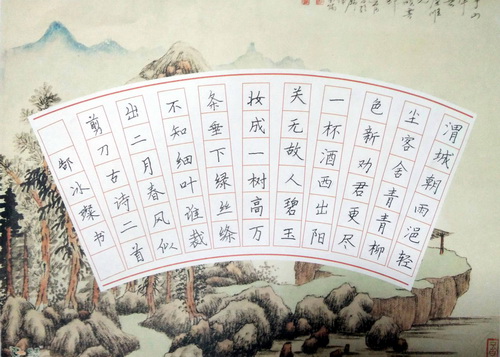 渭城朝雨浥轻
尘客舍青青柳
色新劝君更尽
一杯酒西出阳
关无故人碧玉
妆成一树高万
条垂下绿丝绦
不知细叶谁裁
出二月春风似
剪刀古诗二首
冰 书